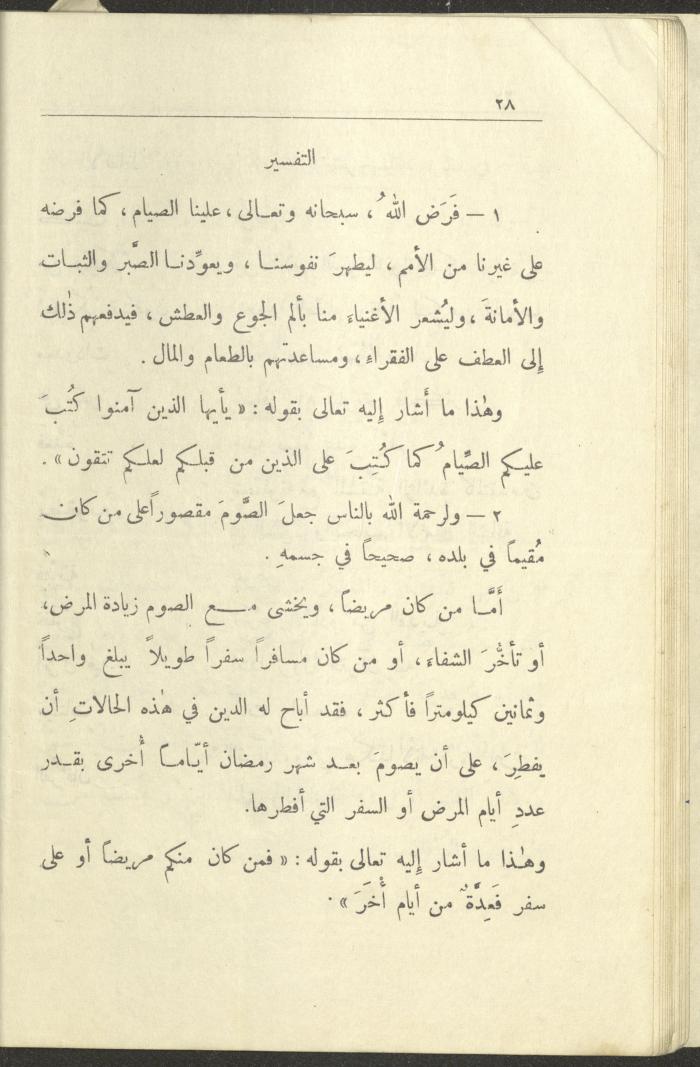 ٢٨
التفسير
١ – فَرَض اللهُ ، سبحانه وتعالى ، علينا الصيام ، كما فرضه
على غيرنا من الأمم ، ليطهرَ نفوسنا ، ويعوِّدنا الصَّبر والثبات
والأمانةَ ، وليُشعر الأغنياءَ منا بألم الجوع والعطش ، فيدفعهم ذٰلك
إلى العطف على الفقراءِ ، ومساعدتهم بالطعام والمال .
وهٰذا ما أَشار إليه تعالى بقوله : « يأيها الذين آمنوا كُتُبَ
عليكم الصِّيامُ كما كُتِبَ على الذين من قبلكم لعلكم تتقون » .
٢ – ولرحمة الله بالناس جعلَ الصَّومَ مقصوراً على من كان
مُقيماً في بلده ، صحيحاً في جسمهِ .
أَمَّا من كان مريضاً ، ويخشى مع الصوم زيادة المرض ،
أو تأخُّرَ الشفاء ، أو من كان مسافراً سفراً طويلاً يبلغ واحداً
وثمانين كيلومتراً فأكثر ، فقد أباح له الدين في هٰذه الحالاتِ أن
يفطِرَ ، على أن يصومَ بعد شهر رمضان أيّاماً أُخرى بقدر
عددِ أيام المرض أو السفر التي أفطرها .
وهٰذا ما أشار إليه تعالى بقوله : « فمن كان منكم مريضاً أو على
سفر فَعِدَّةٌ من أيام أُخَرَ » .